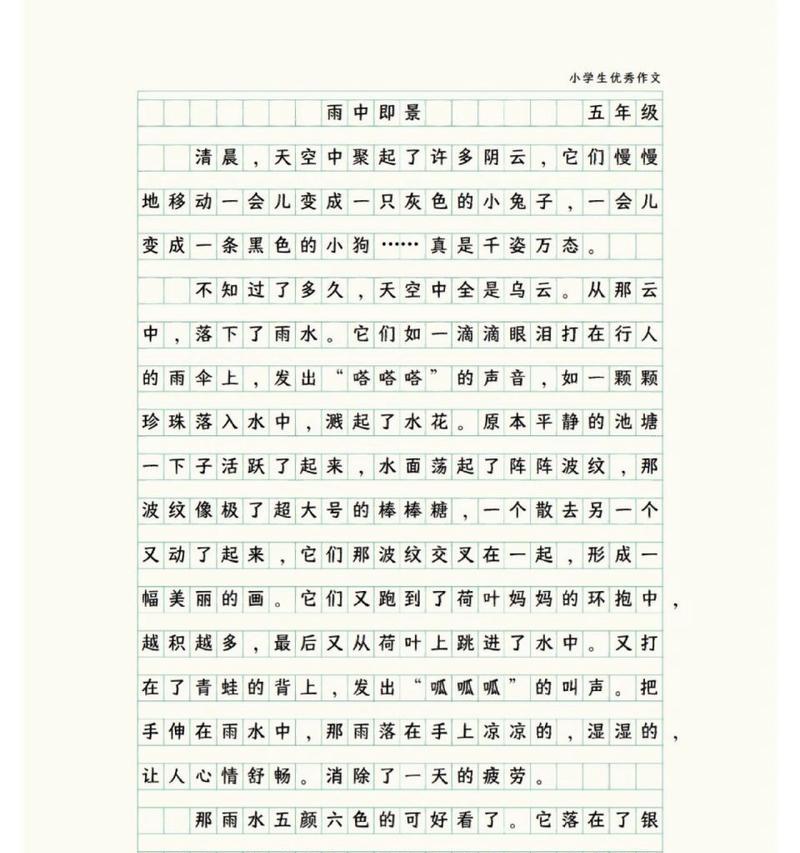 小学生优秀作文
雨中即景 五年级
清晨，天空中聚起了许多阴云，它们慢慢
地移动一会儿变成一只灰色的小兔子，一会儿
变成一条黑色的小狗……真是千姿万态。
不知过了多久，天空中全是乌云。从那云
中，落下了雨水。它们如一滴滴眼泪打在行人
的雨伞上，发出“嗒嗒嗒”的声音，如一颗颗
珍珠落入水中，溅起了水花。原本平静的池塘
一下子活跃了起来，水面荡起了阵阵波纹，那
波纹像极了超大号的棒棒糖，一个散去另一个
又动了起来，它们那波纹交叉在一起，形成一
幅美丽的画。它们又跑到了荷叶妈妈的环抱中，
越积越多，最后又从荷叶上跳进了水中。又打
在了青蛙的背上，发出“呱呱呱”的叫声。把
手伸在雨水中，那雨落在手上凉凉的，湿湿的，
让人心情舒畅。消除了一天的疲劳。
那雨水五颜六色的可好看了。它落在了银